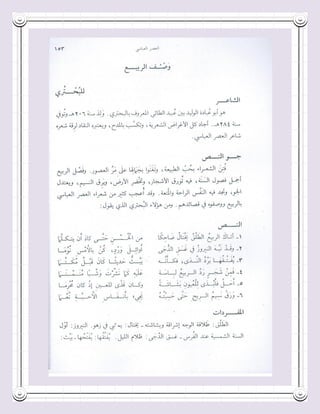 العصر العباسي ١٥٣
وَصْـف الربيـع
للبُحْـتُري
الشاعـر
هو أبو عُبادة الوليد بن عُبيد الطائي المعروف بالبحتري. وُلِد سنة ٢٠٦هـ وتُوفي
سنة ٢٨٤هـ. أجاد كل الأغراض الشعرية، وتكسّب بالمدح، ويعتبره النقاد لرقة شعره
شاعر العصر العباسي.
جـو النـص
فُتِنَ الشعراء بحُب الطبيعة، وتَغَنَّوا بجمالها على مَرِّ العصور. وفصل الربيع
أجمل فصول السنة، فيه تُورِق الأشجار، وتَخْضَر الأرض، ويرق النسيم، ويعتدل
الجو، وتجد فيه النفْس الراحة والمتعة. وقد أُعجب كثير من شعراء العصر العباسي
بالربيع ووصفوه في قصائدهم. ومن هؤلاء البُحتري الذي يقول:
النـص
١- أتاكَ الربيعُ الطَّلْقُ يَخْتالُ ضاحِكًا مِنَ الحُسْنِ حَتَّى كادَ أن يَتَكلَّما
٢- وقَدْ نَبَّهَ النيروزُ في غَسَقِ الدُّجَى أوائِلَ وَرْدٍ، كُنَّ بالأمْسِ نُوَّما
٣- يُفَتِّقُها بَرْدُ النَّدَى، فكَأنَّـه يَبُثُّ حديثًا كانَ قَبْلُ مُكَتَّما
٤- فَمِنْ شَجَرٍ رَدَّ الربيعُ لِباسَهُ عَلَيْهِ كَمَا نَشَّرْتَ وَشْيًا مُنَمْنَما
٥- أَحَـلَّ فأبْدَى لِلْعُيونِ بَشاشَةً وكانَ قَذًى للعَيْنِ إذْ كانَ مُحْرِما
٦- ورَقَّ نَسِيمُ الريحِ حَتَّى حَسِبْتُهُ يَجِيءُ بأنْفـاسِ الأحِبَّـةِ نُعَّما
المفـردات
الطَّلْق: طلاقة الوجه إشراقه وبشاشته ـ يختال: يأتي في زهو. النيروز: أول
السنة الشمسية عند الفُرس ـ غسق الدجى: ظلام الليل. يفتقها: يفتحها ـ يبث: